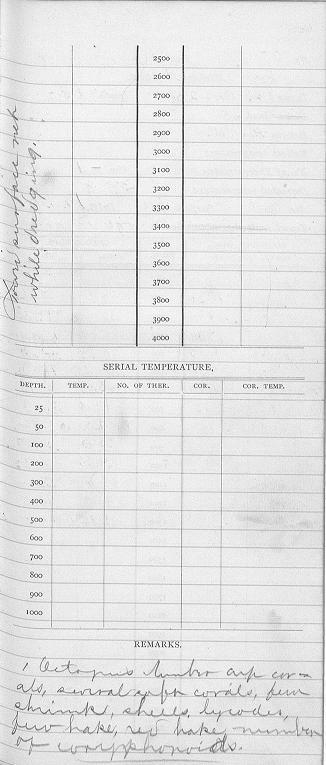 surface net
while dredging.
2500
2600
2700
2800
2900
3000
3100
3200
3300
3400
3500
3600
3700
3800
3900
4000
SERIAL TEMPERATURE,
DEPTH. TEMP. NO. OF THER. COR. COR. TEMP.
25
50
100
200
300
400
500
600
700
800
900
1000
REMARKS.
1 Octopus cor-
als, several soft corals, few
shrimk, shells, lycodes,
few hake, red hake, number
of